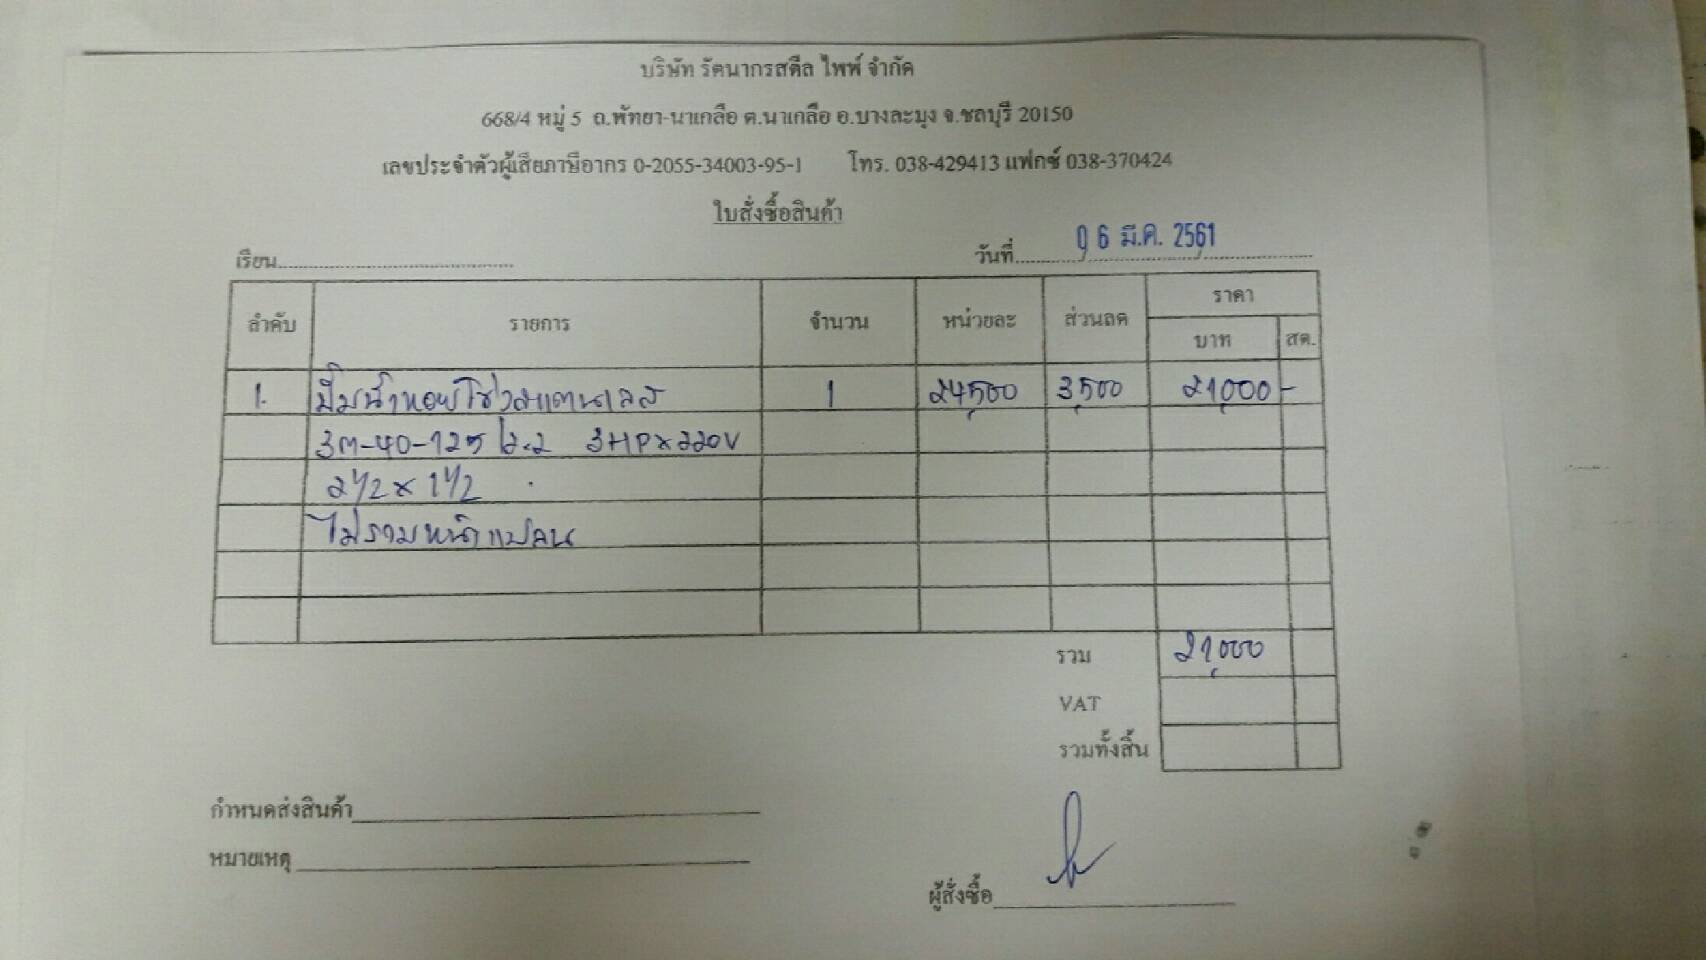 บริษัท รัตนากรสตีล ไพพ์ จำกัด
668/4 หมู่ 5 ถ.พัทยา-นาเกลือ ต.นาเกลือ อ.บางละมุง จ.ชลบุรี 20150
เลขประจำตัวผู้เสียภาษีอากร 0-2055-34003-95-1 โทร. 038-429413 แฟกซ์ 038-370424
ใบสั่งซื้อสินค้า
เรียน วันที่ 06 มี.ค. 2561
ลำดับ รายการ จำนวน หน่วยละ ส่วนลด ราคา
บาท สต.
1. ปั๊มน้ำหอยโข่งสแตนเลส 1 24,500 3,500 21,000 -
3M-40-125/2.2 3HP x 220V
2 1/2 x 1 1/2
ไม่รวมหน้าแปลน
รวม 21,000
VAT
รวมทั้งสิ้น
กำหนดส่งสินค้า
หมายเหตุ
ผู้สั่งซื้อ